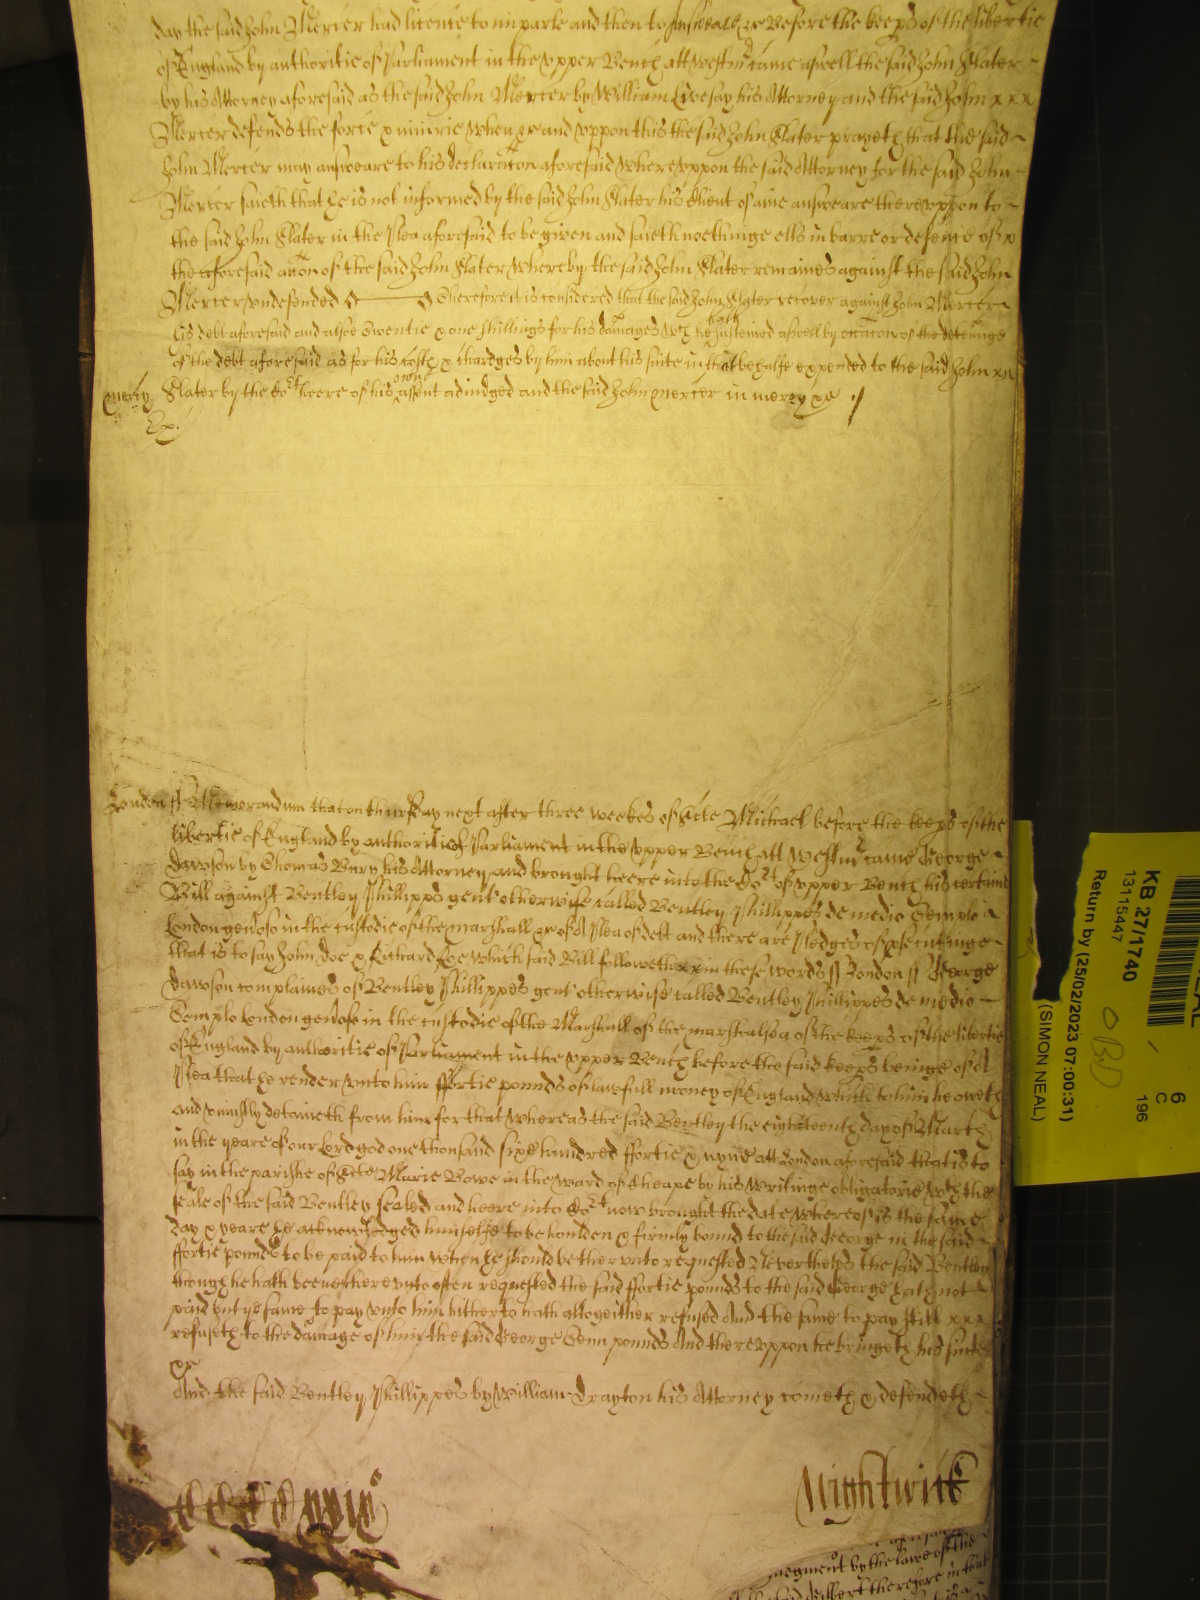 day the said John Mercer had licence to imparle and then to answeare &c Before the keeps of the libertie
of England by authoritie of Parliament in the upper Bench att Westmr came aswell the said John Slater
by his Attorney aforesaid as the said John Mercer by William Livesay his Attorney and the said John x x x
Mercer defends the force & iniurie when &c and uppon this the said John Slater prayeth that the said
John Mercer may answeare to his declaracon aforesaid Whereuppon the said Attorney for the said John
Mercer saieth that he is not informed by the said John Slater his Client of anie answeare thereuppon to
the said John Slater in the Plea aforesaid to be given and saieth noethinge ells in barre or defence of x
the aforesaid accon of the said John Slater whereby the said John Slater remaines against the said John
Mercer undefended Therefore it is considered that the said John Slater recover against John Mercer
his debt aforesaid and alsoe Twentie & one shillings for his damages wch he hath susteined aswell by occacon of the deteininge
of the debt aforesaid as for his costs & chardges by him about his suite in that behalfe expended to the said John xx
Slater by the Cort heere of his owne assent adiudged and the said John Mercer in mercy &c
mercy
Ex.
London ss Memorandum that on thursday next after three weekes of Ste Michael before the keeps of the
libertie of England by authoritie of Parliament in the upper Bench att Westmr came George
Dawson by Thomas Bary his Attorney and brought heere into the Cort of upper Bench his certaine
Bill against Bentley Phillipps gent otherwise called Bentley Phillippes de medio Temple
London geñoso in the custodie of the marshall &c of A Plea of dett and there are Pledges of psecutinge
that is to say John Doe & Richard Roe which said Bill followeth xx in these words ss London ss George
Dawson complaines of Bentley Phillippes gent otherwise called Bentley Phillippes de medio
Temple London geñoso in the custodie of the Marshall of the marshalsea of the keeps of the libertie
of England by authoritie of Parliament in the upper Bench before the said keeps beinge of A
Plea that he render unto him ffortie pounds of lawfull money of England which to him he oweth
and uniustly deteineth from him for that whereas the said Bentley the eighteenth day of March
in the yeare of our Lord god one thousand sixe hundred ffortie & nyne att London aforesaid that is to
say in the parishe of Ste Marie Bowe in the ward of Cheape by his writinge obligatorie wth the
seale of the said Bentley sealed and heere into Cort now brought the date whereof is the same
day & yeare he acknowledged himselfe to be houlden & firmly bound to the said George in the said
ffortie pounds to be paid to him when he should be therunto requested Neverthelss the said Bentley
though he hath beene thereunto often requested the said ffortie pounds to the said George hath not
paid but ye same to pay unto him hitherto hath altogeither refused And the same to pay still x x x
refuseth to the damage of him the said George Tenn pounds And thereuppon he bringeth his suite
&c
And the said Bentley Phillippes by William Drayton his Attorney cometh & defendeth
Nightwick
megment by the Lawe of the
therefore in that
KB 27/1740
13115447
Return by (25/02/2023 07:00:31)
(SIMON NEAL)
6
C
196